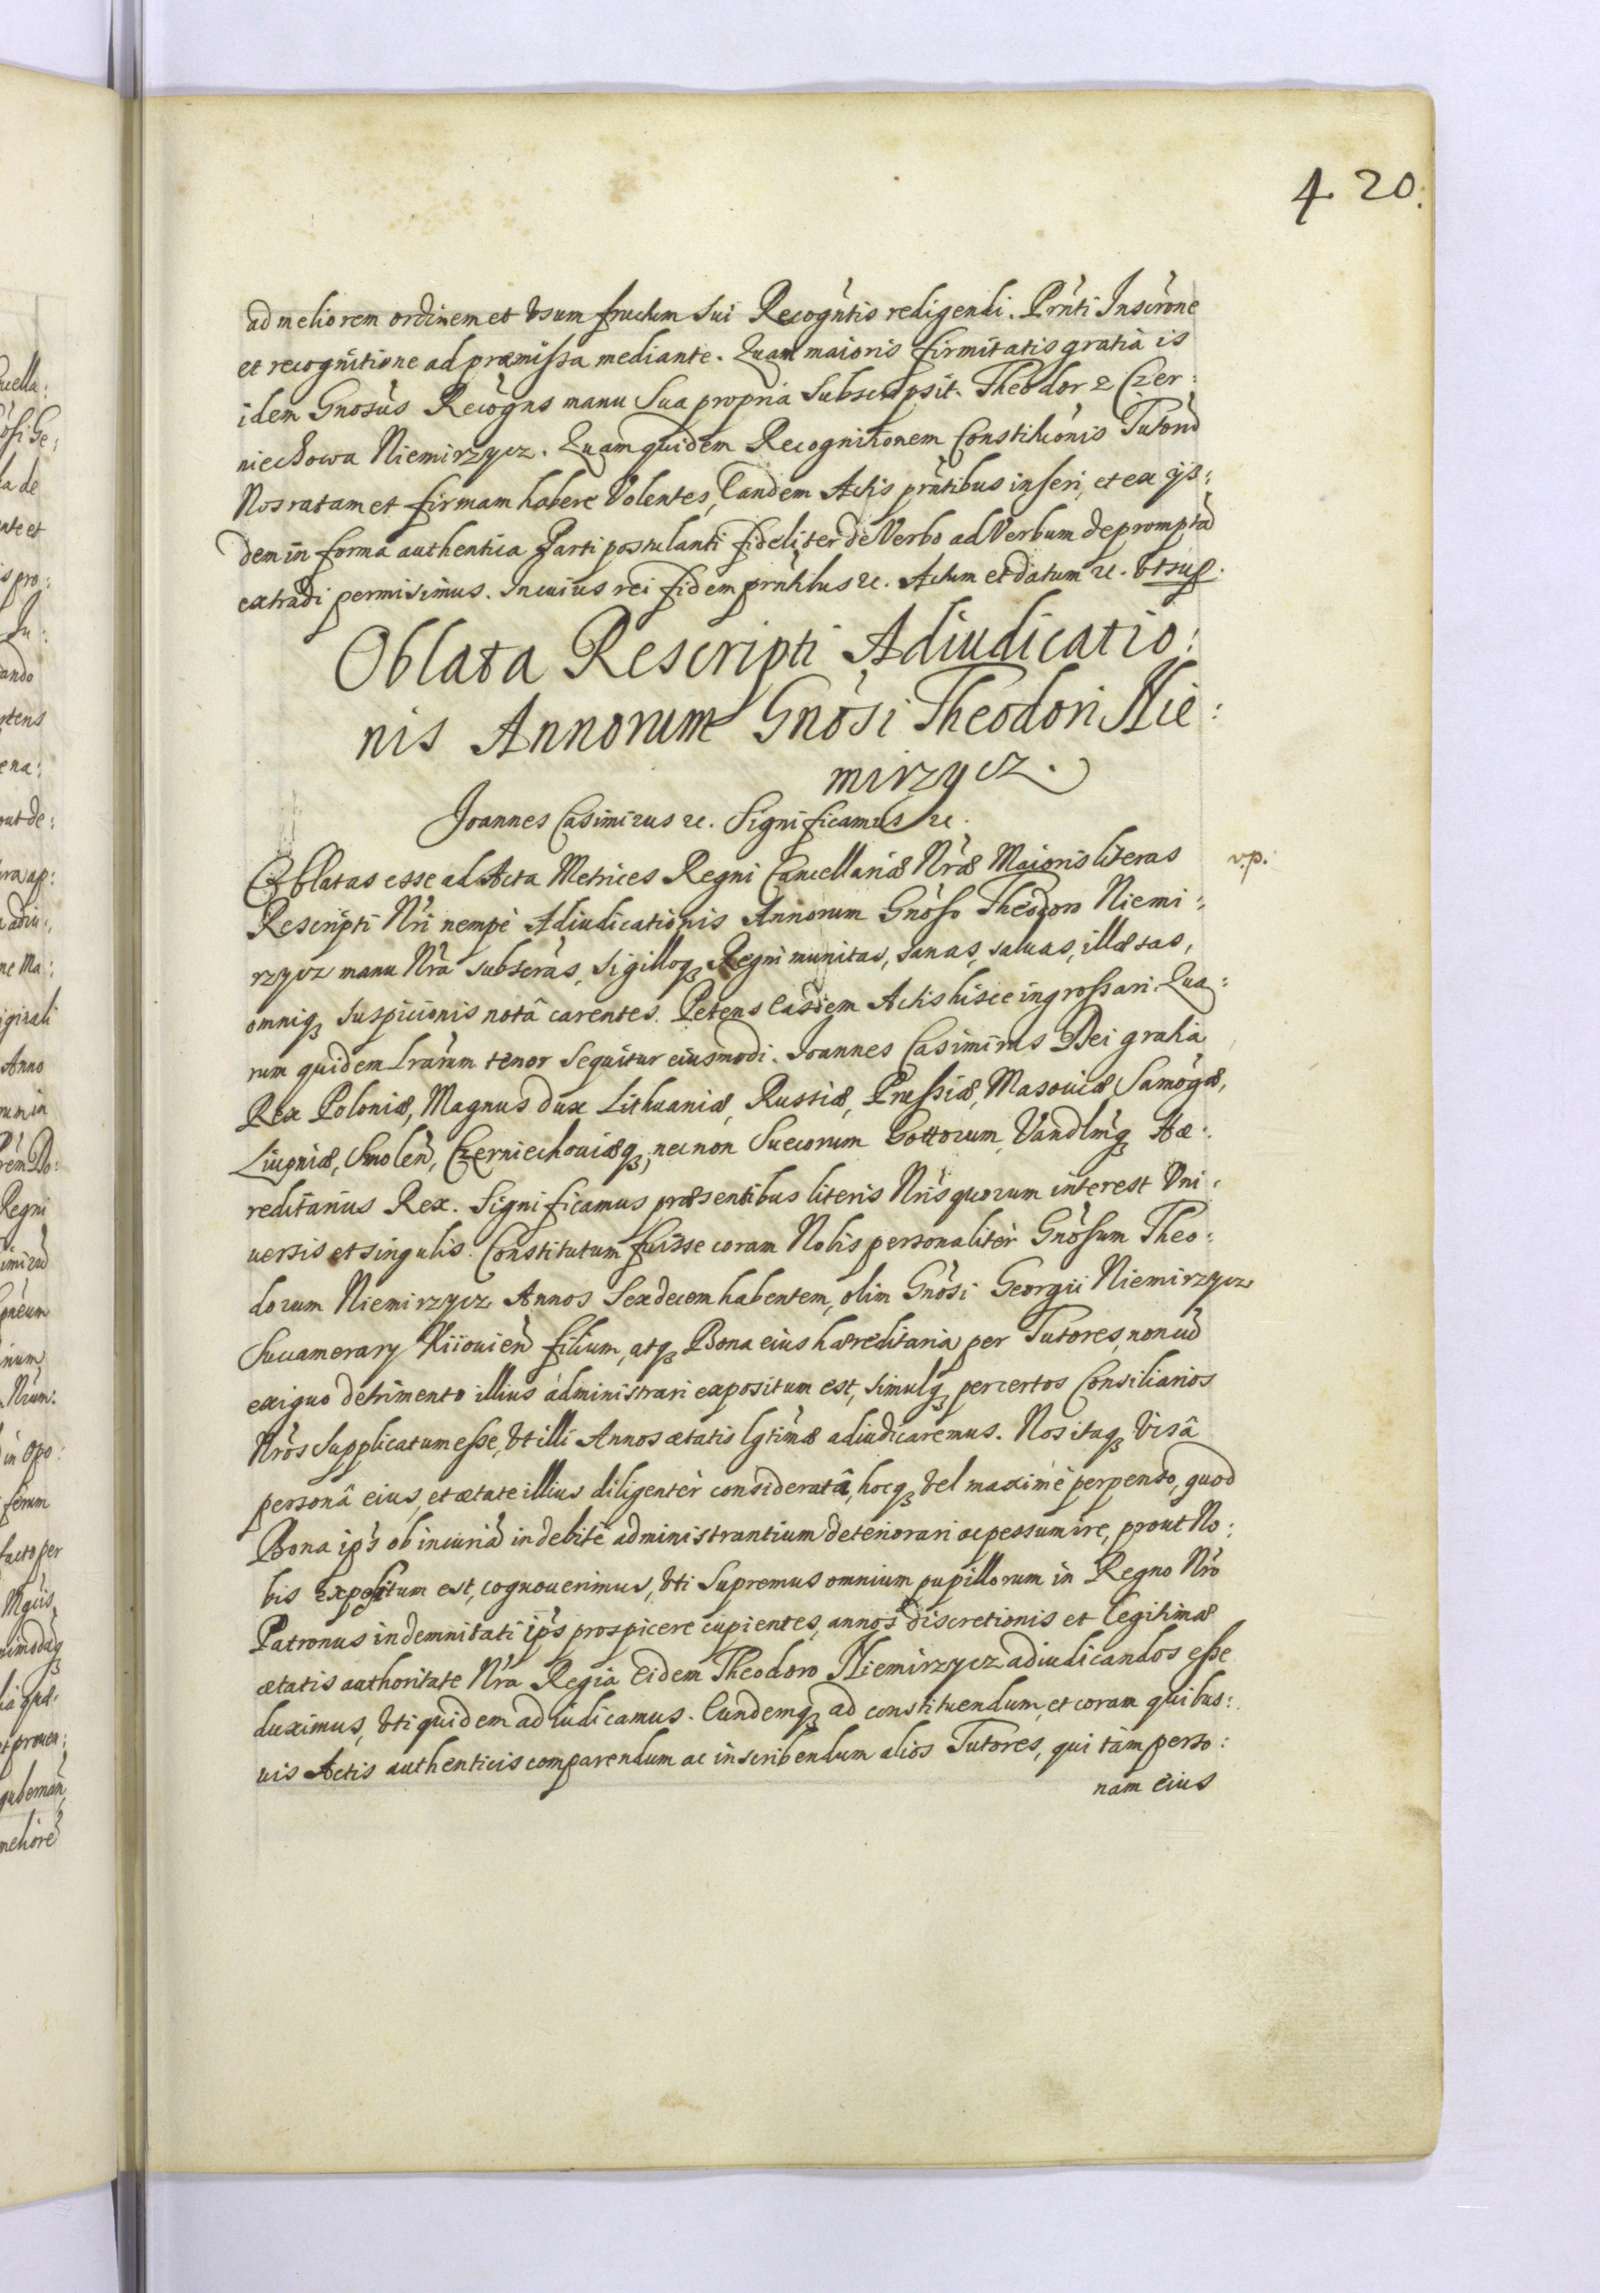 4 20.
ad meliorem ordinem et Vsum fructum Sui Recogntis redigendi. Prnti Inscrone
et recognitione ad præmissa mediante. Quam maioris firmitatis gratia is
idem Gnosus Recogns manu Sua propria Subscripsit. Theodor z Czer:
niechowa Niemirzycz. Quam quidem Recognitionem Constitionis Tutorũ
Nos ratam et firmam habere Volentes, Eandem Actis prntibus inseri, et ex ijs:
dem in forma authentica Parti postulanti fideliter de Verbo ad Verbum depromptã
extradi permisimus. In cuius rei fidem prntibus &c. Actum et datum &c. Vt sup.
Oblata Rescripti Adiudicatio:
nis Annorum Gnosi Theodori Nie:
mirzycz.
Joannes Casimirus &c. Significamus &c.
Oblatas esse ad Acta Metrices Regni Cancellariæ Nræ Maioris literas
v.p.
Rescripti Nri nempè Adiudicationis Annorum Gnoso Theodoro Niemi:
rzycz manu Nra subscras, Sigilloq; Regni munitas, sanas, saluas, illæsas,
omniq; Suspicionis notâ carentes. Petens Easdem Actis hisce ingrossari. Qua:
rum quidem Lrarum tenor Sequitur eiusmodi. Joannes Casimirus Dei gratia
Rex Poloniæ, Magnus dux Lithuaniæ, Russiæ, Prussiæ, Masouiæ, Samogæ,
Liuoniæ, Smolen, Czerniechouiæq;, nec non Suecorum Gottorum, Vandlmq; Hæ:
reditarius Rex. Significamus præsentibus literis Nris quorum interest Vni:
uersis et singulis. Constitutum fuisse coram Nobis personalitèr Gnosum Theo:
dorum Niemirzycz Annos Sexdecem habentem, olim Gnosi Georgii Niemirzycz
Succamerary Kiiouien filium, atq; Bona eius hæreditaria per Tutores, non cũ
exiguo detrimento illius administrari expositum est, simulq; per certos Consiliarios
Nros Supplicatum esse, Vt illi Annos ætatis lgtimæ adiudicaremus. Nos itaq; Visâ
personâ eius, et ætate illius diligentèr consideratâ, hocq; Vel maximè perpenso, quod
Bona ips ob incuriã indebitè administrantium deteriorari ac pessum ire, prout No:
bis expositum est, cognouerimus, Vti Supremus omnium pupillorum in Regno Nro
Patronus indemnitati ips prospicere cupientes, annos discretionis et Legitimæ
ætatis authoritate Nra Regia Eidem Theodoro Niemirzycz adiudicandos esse
duximus, Vti quidem adiudicamus. Eundemq; ad constituendum, et coram quibus:
uis Actis authenticis comparendum ac inscribendum alios Tutores, qui tàm perso:
nam eius